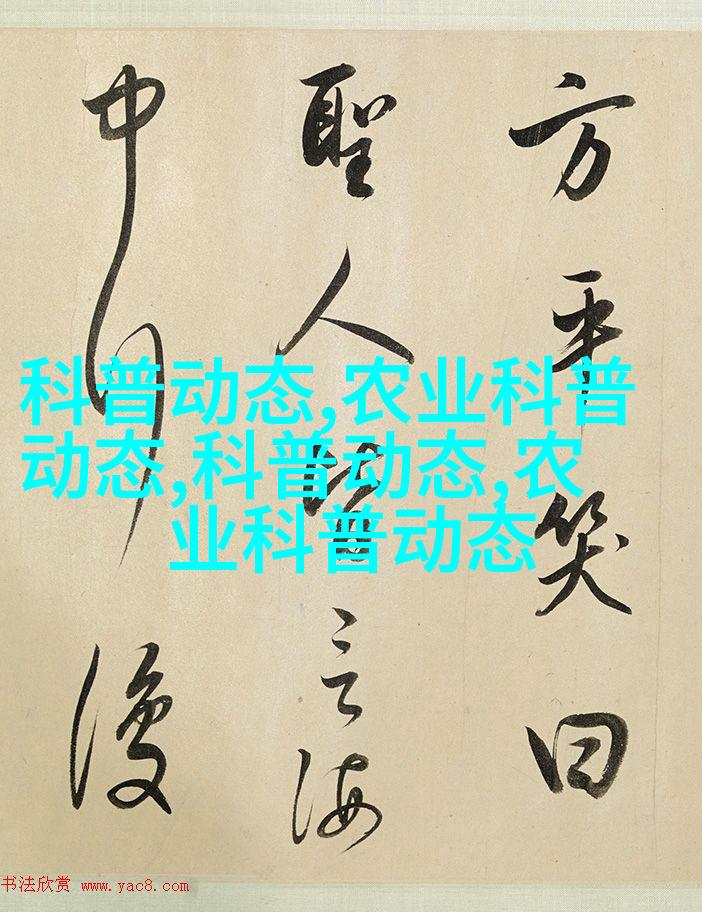 方平笑曰
聖人皆言海
中行復
科普动态,农业科普
动态,科普动态,农
业科普动态
书法欣赏 www.yac8.com